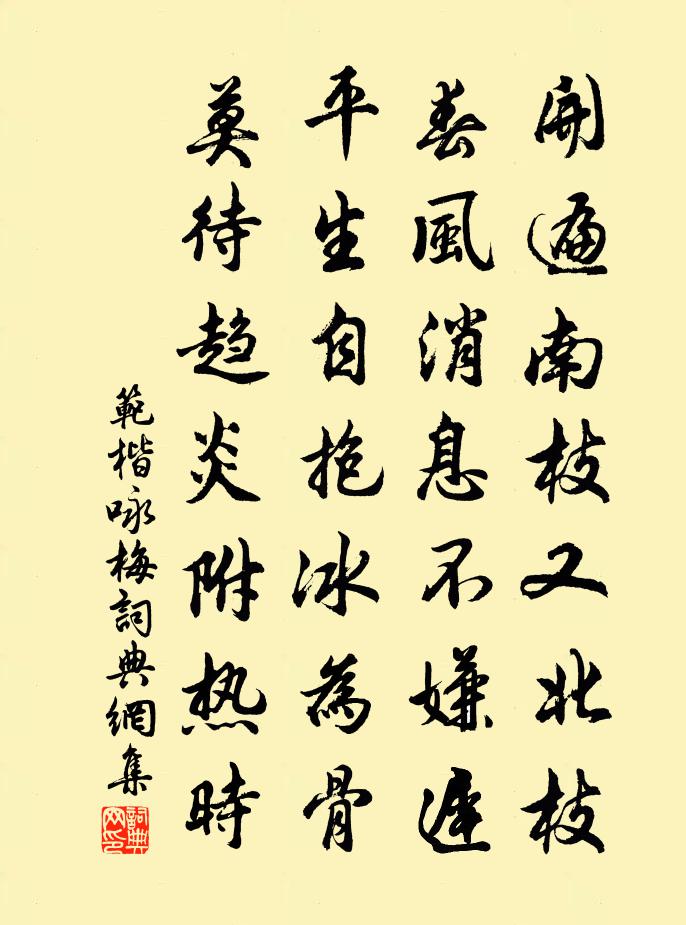 開遍南枝又北枝
春風消息不嫌遲
平生自抱冰為骨
莫待趨炎附热時
範楷咏梅詞典網集
詞典网印